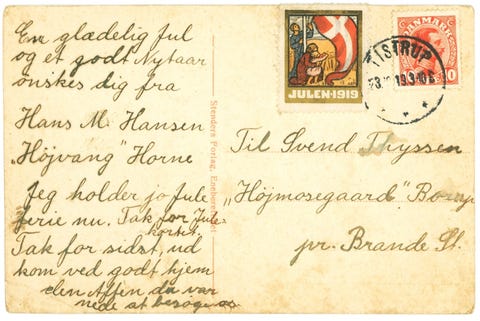 En glædelig jul
og et godt Nytaar
ønskes dig fra
Hans M. Hansen
„Höjvang" Horne
Jeg holder jo Jule
ferie nu. Tak for Jule-
kortet.
Tak for sidst, ud
kom ved godt hjem
den Aften da var
nede at besøge os
Stenders Forlag, Eneberettiget
JULEN·1919
DANMARK
10
TISTRUP
19.9
Til Svend Thyssen
„Höjmosegaard"
pr. Brande St.